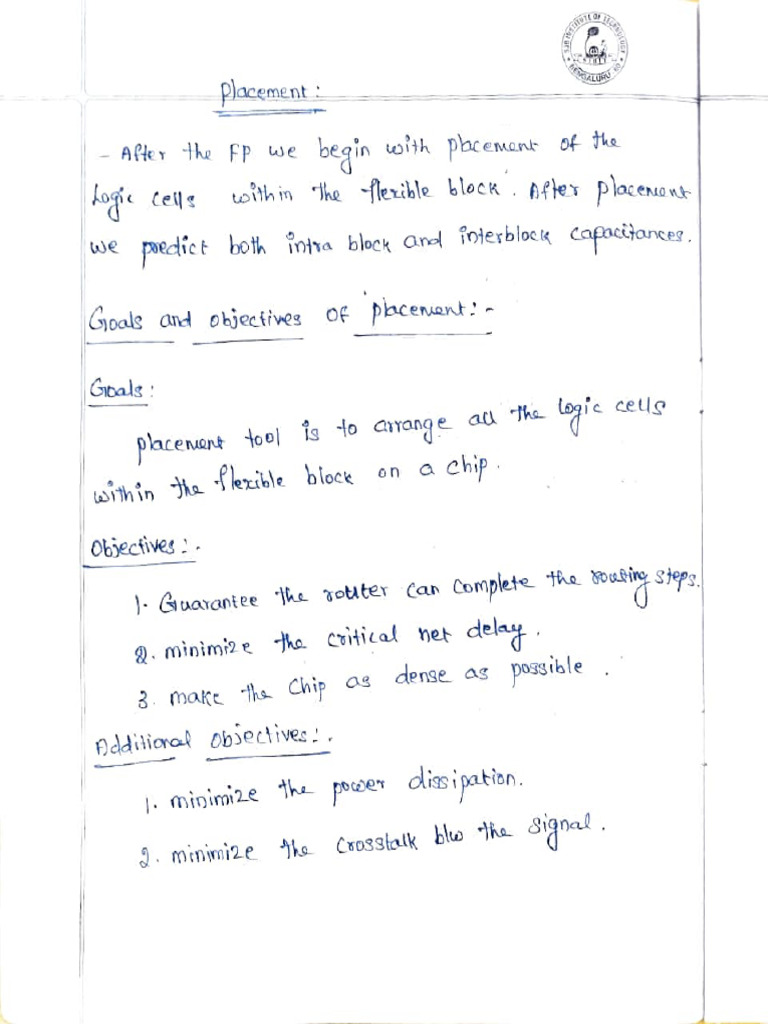 SJB INSTITUTE OF TECHNOLOGY
BENGALURU
Placement :
- After the FP we begin with placement of the
Logic cells within the flexible block. After placement
we predict both intra block and interblock capacitances.
Goals and objectives of placement : -
Goals :
placement tool is to arrange all the logic cells
within the flexible block on a chip.
Objectives : .
1. Guarantee the router can complete the routing steps.
2. minimize the critical net delay.
3. make the chip as dense as possible .
Additional objectives : .
1. minimize the power dissipation.
2. minimize the crosstalk b/w the signal.